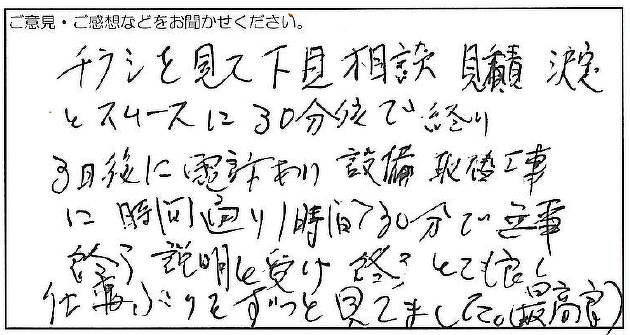 ご意見・ご感想などをお聞かせください。
チラシを見て下見 相談 見積 決定
とスムースに30分位で終り
3日後に電話あり 設備 取替工事
に時間通り1時間30分で工事
終う 説明を受け 終う とても良い
仕事ぶりをずっと見てました。(最高です)